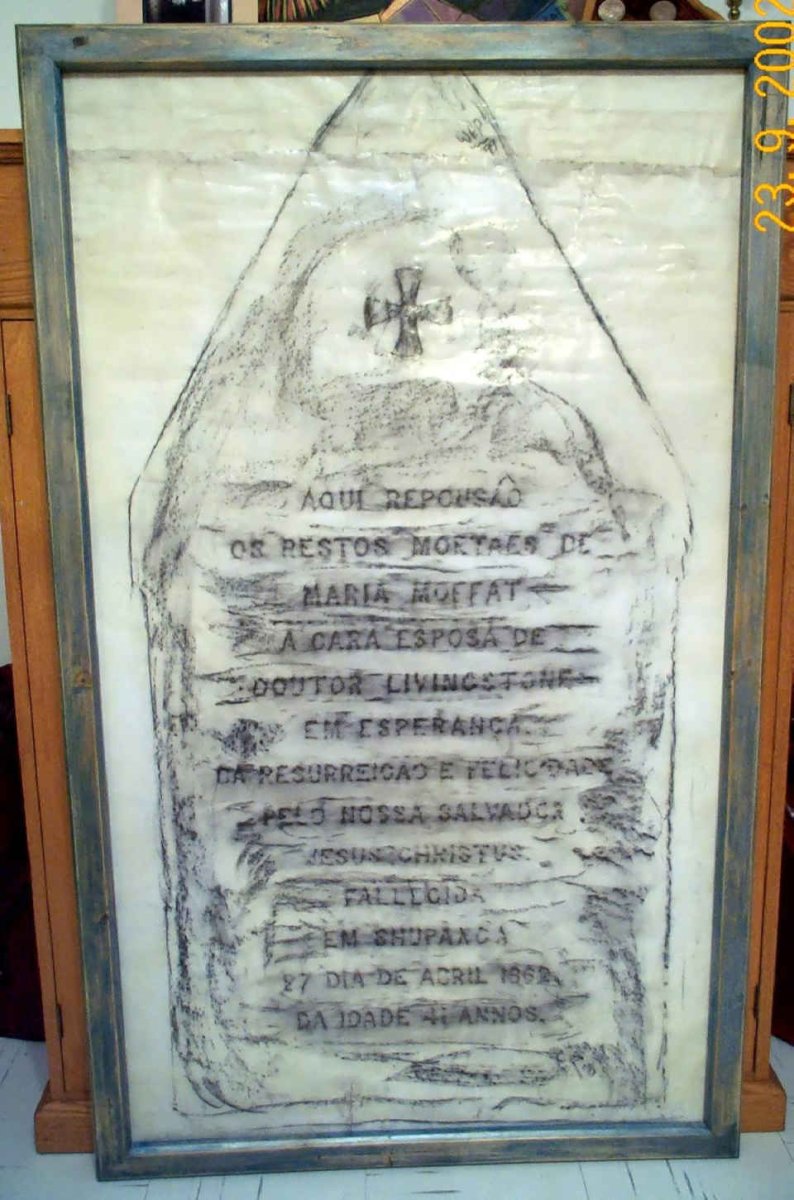 AQUI REPOUSÃO
OS RESTOS MORTAES DE
MARIA MOFFAT
A CARA ESPOSA DE
DOUTOR LIVINGSTONE
EM ESPERANÇA
DA RESURREICAO E FELICIDADE
PELO NOSSA SALVADOR
JESUS CHRISTUS.
FALLECIDA
EM SHUPANGA
27 DIA DE ABRIL 1862.
DA IDADE 41 ANNOS.
23. 9. 2002